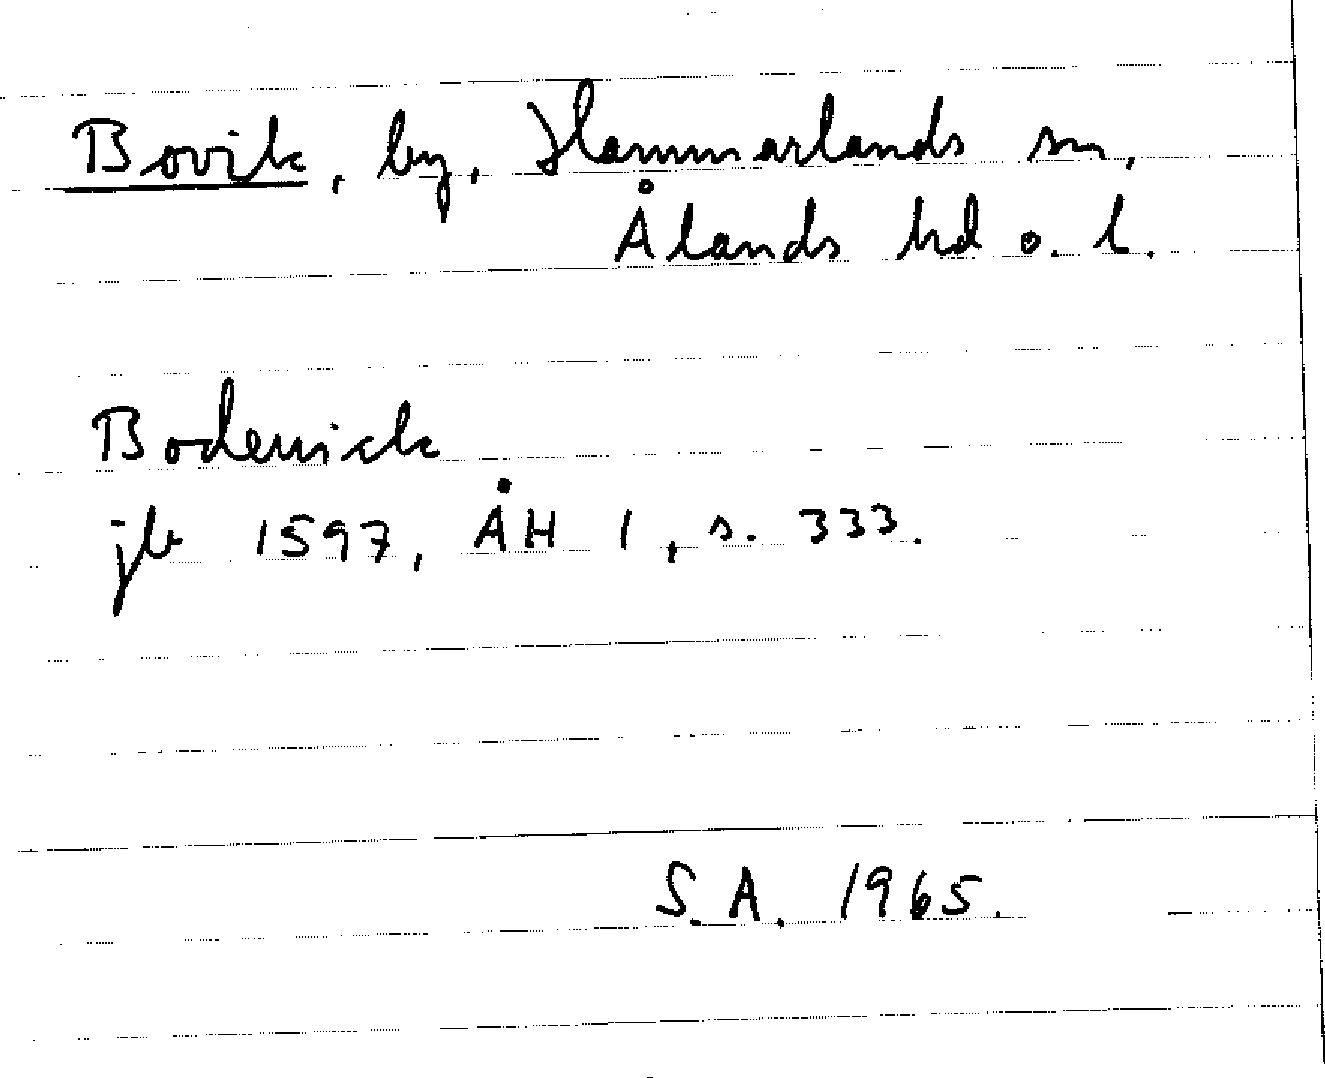 Bovik, by, Hammarlands sn,
Ålands hd o. l.
Bodewick
jb 1597, ÅH 1, s. 333.
S.A. 1965.